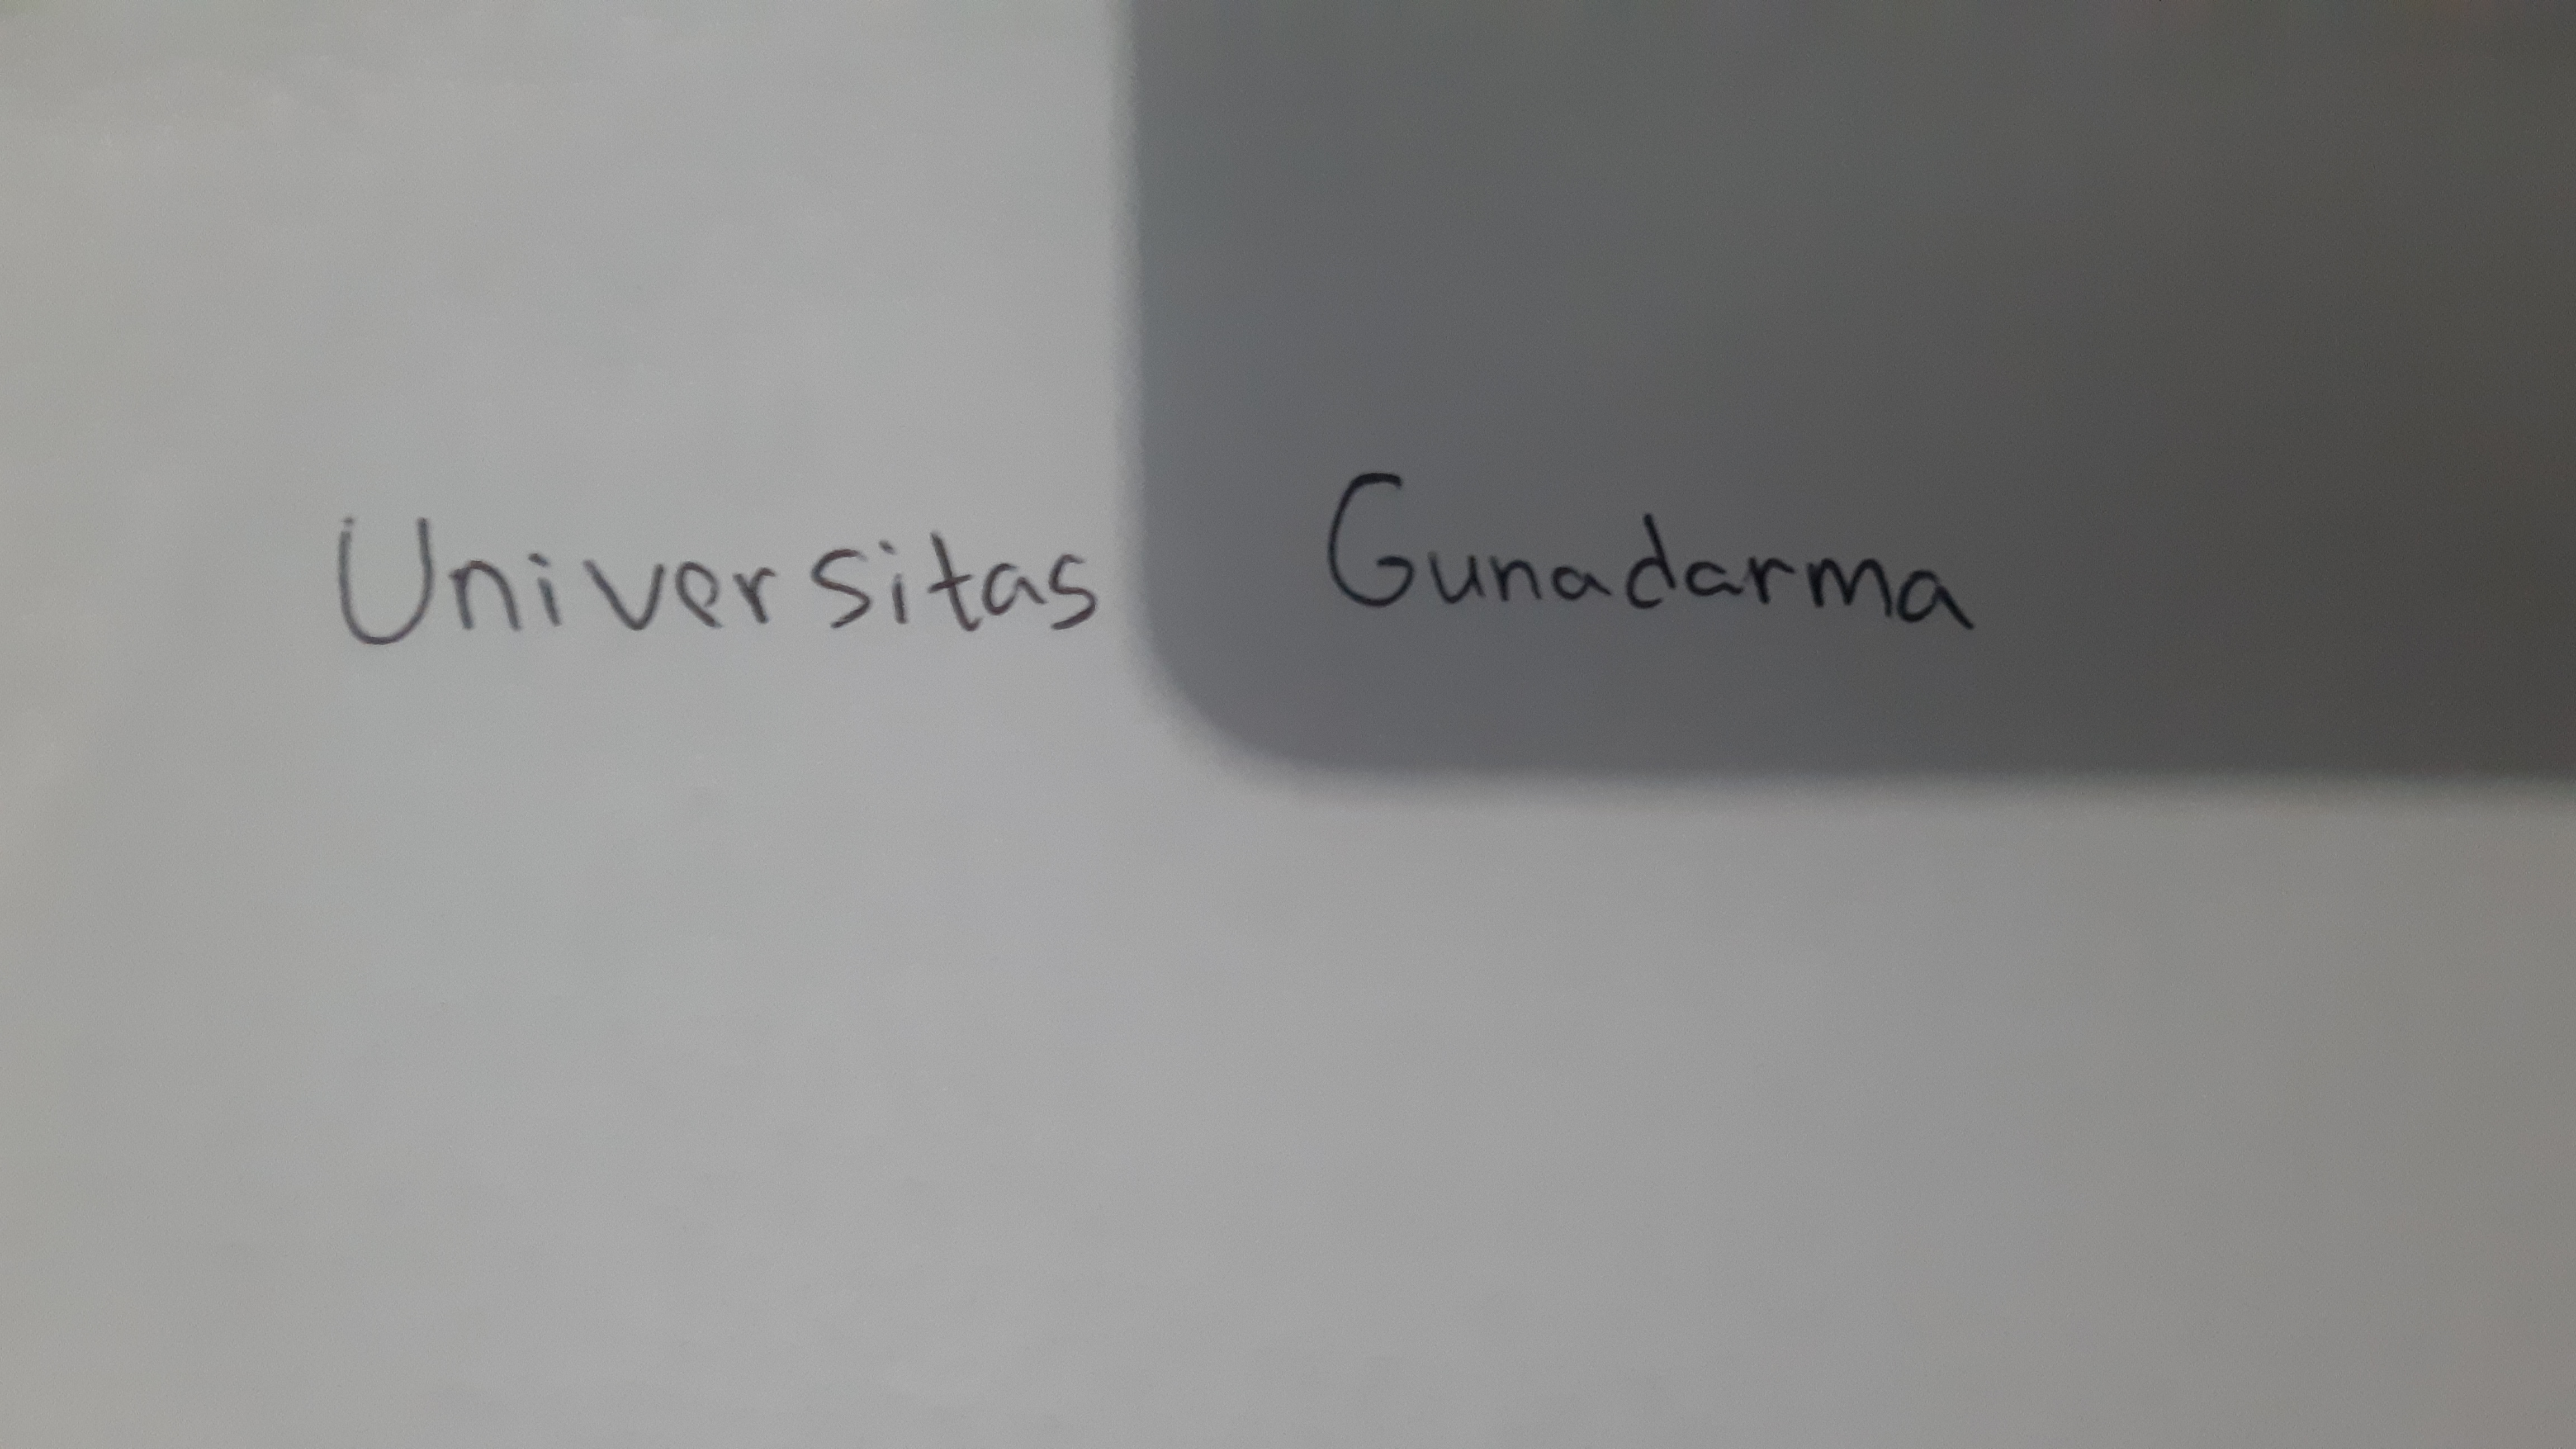 Universitas Gunadarma